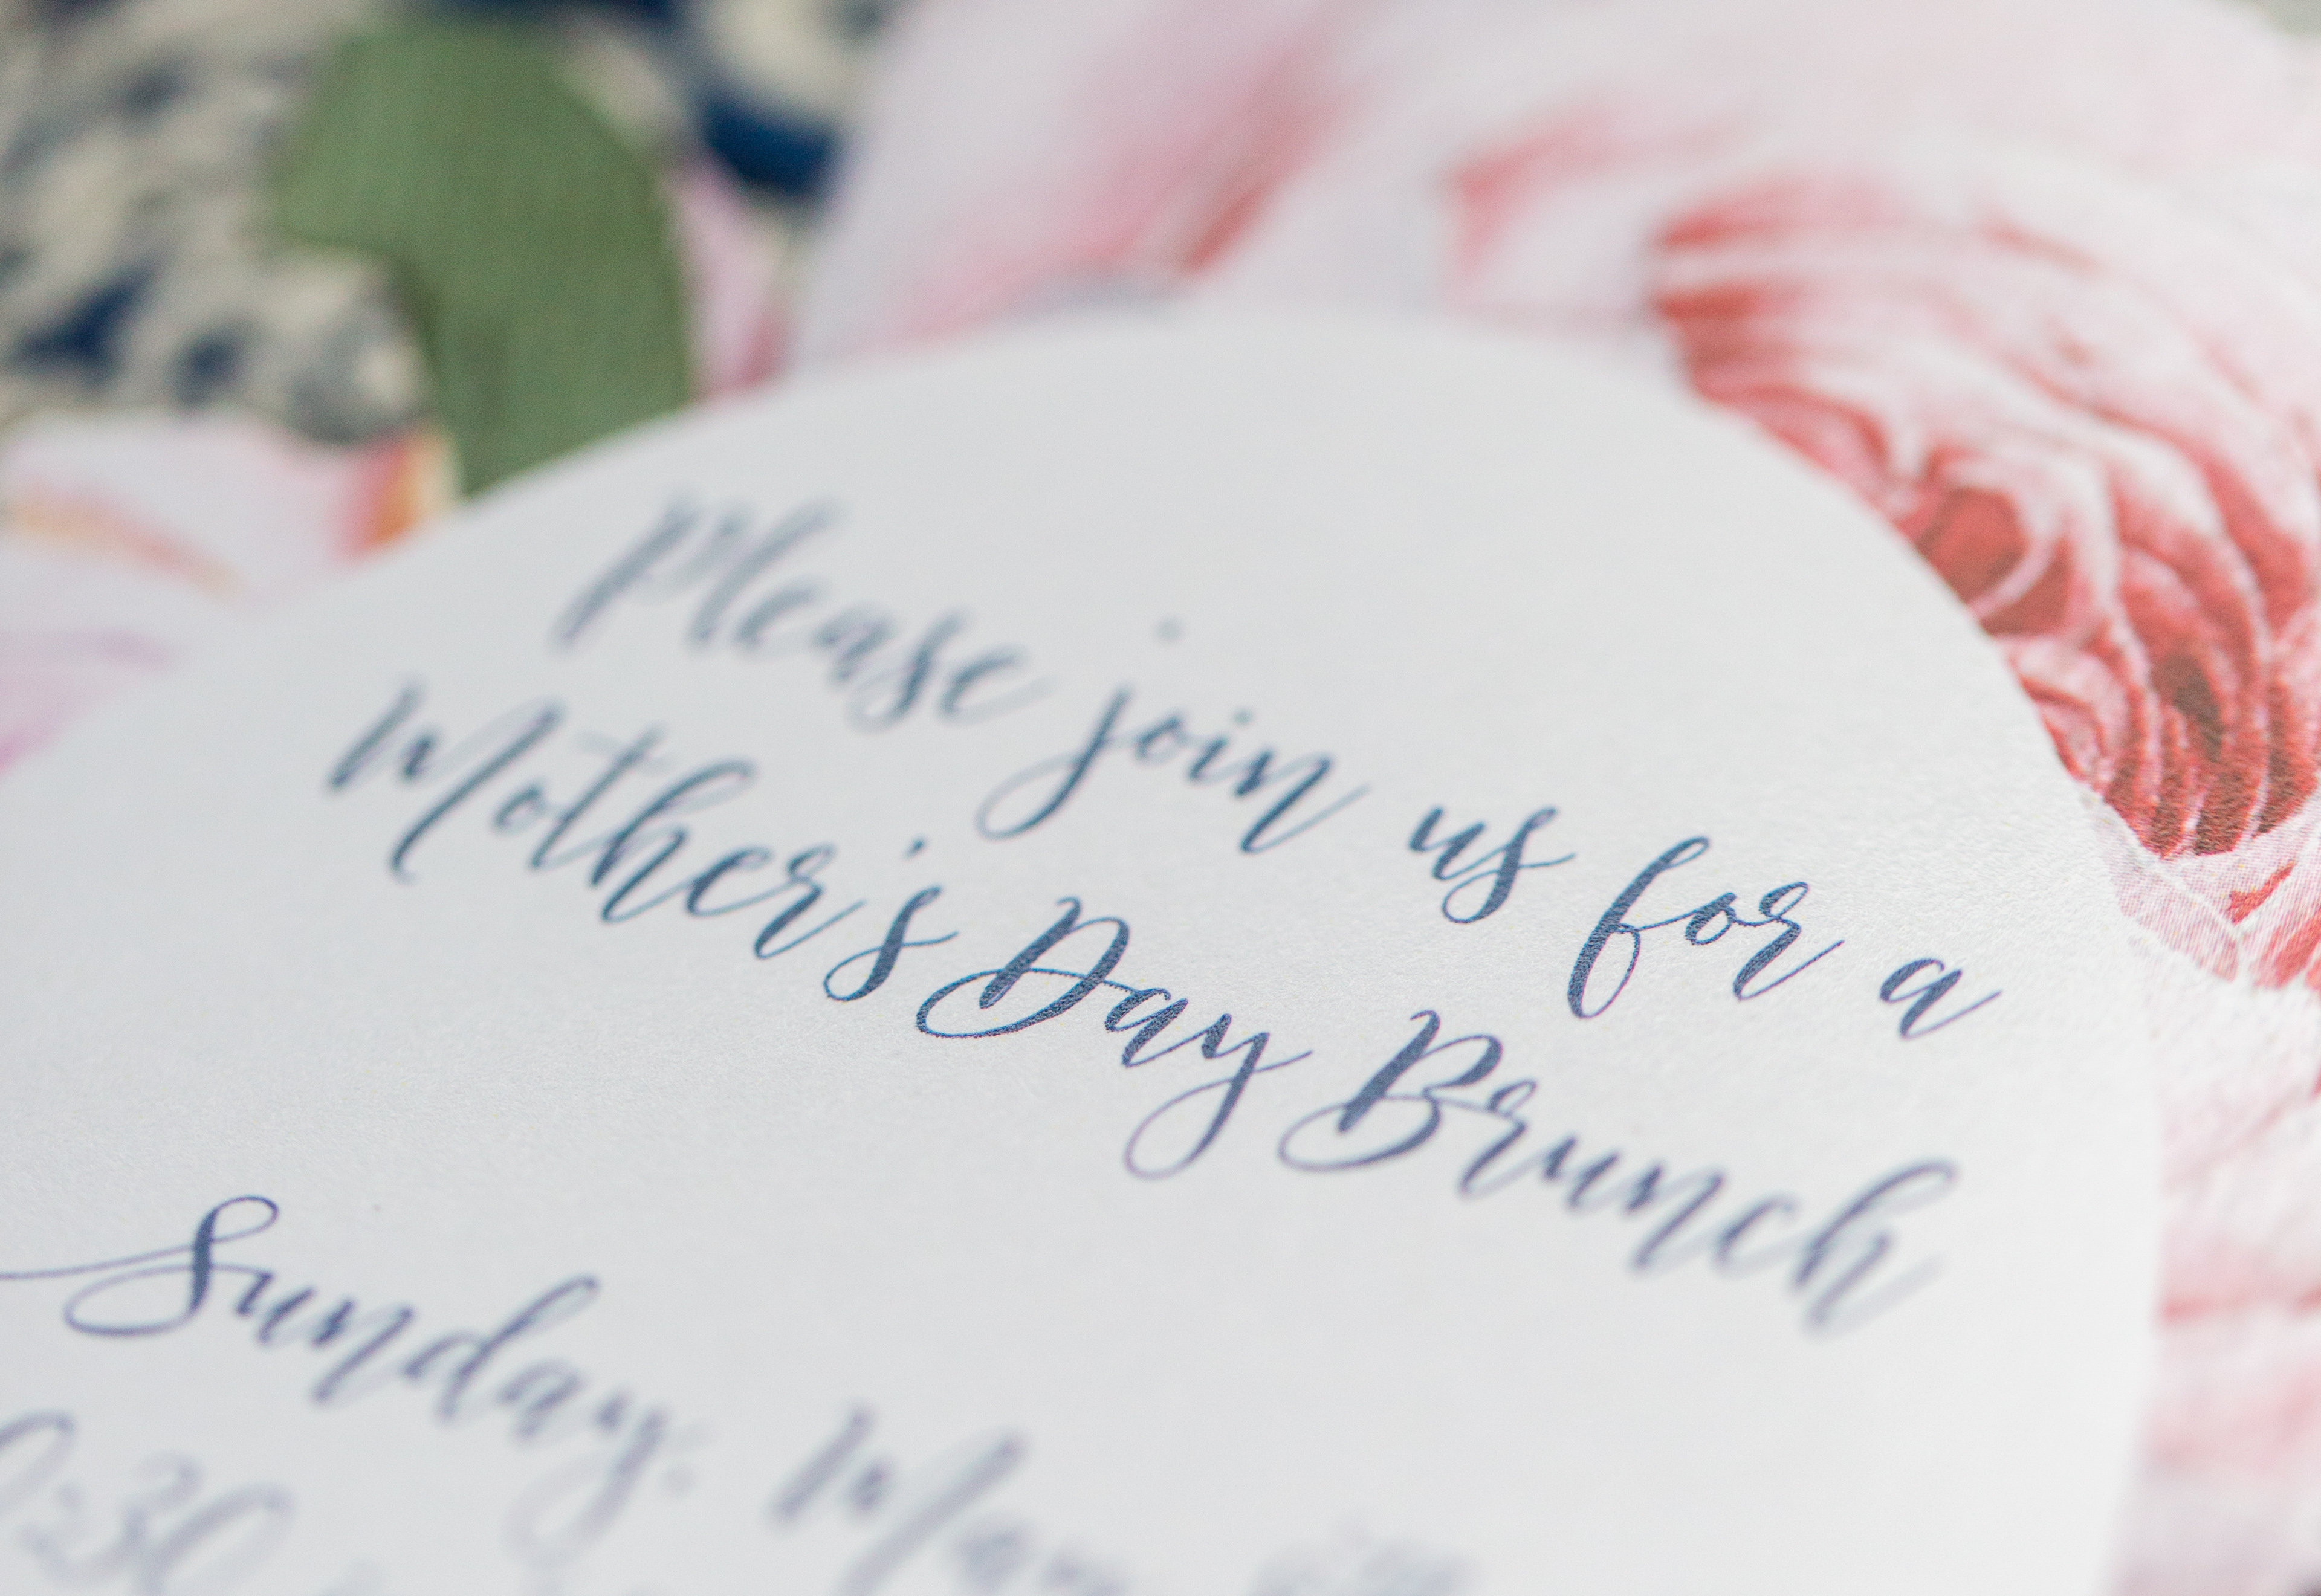 Please join us for a
Mother's Day Brunch
Sunday, May